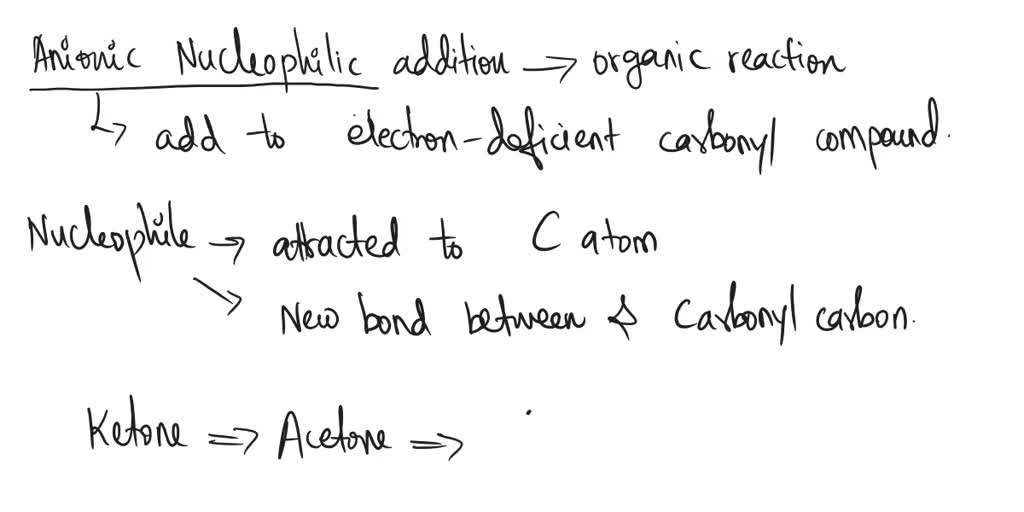 Anionic Nucleophilic addition → organic reaction
↳ add to electron-deficient carbonyl compound.
Nucleophile → attracted to C atom
↘ New bond between & Carbonyl carbon.
Ketone ⇒ Acetone ⇒